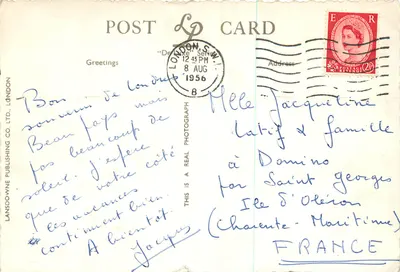 POST CARD
LP
LONDON, S.W.1
12 45 PM
8 AUG
1956
B
E R
POSTAGE REVENUE
2½D
Greetings
Address
LANSDOWNE PUBLISHING CO. LTD., LONDON
THIS IS A REAL PHOTOGRAPH
Bon
souvenir de Londres
Beau pays mais
pas beaucoup de
soleil. J'espère
que de votre côté
les vacances
continuent bien.
A bientôt.
Jacques
Mlle Jacqueline
Latif & famille
à Domino
par Saint Georges
Ile d'Oléron
(Charente-Maritime)
FRANCE